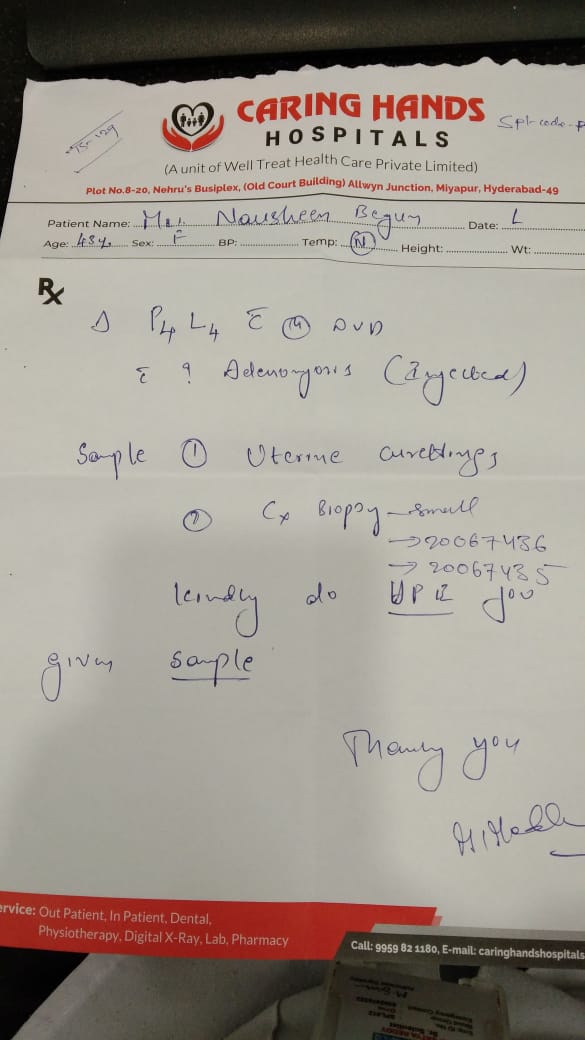 CARING HANDS
HOSPITALS
Spl-code-
(A unit of Well Treat Health Care Private Limited)
Plot No.8-20, Nehru's Busiplex, (Old Court Building) Allwyn Junction, Miyapur, Hyderabad-49
Patient Name: Nausheen Begum Date:
Age: 43y Sex: F BP: Temp: N Height: Wt:
Rx
Δ P4 L4 c̄ DUB
c̄ ? Adenomyosis
Sample ① Uterine curettings
② Cx Biopsy - small
→ 20067436
→ 20067435
kindly do HPE for
given sample
Thank you
ervice: Out Patient, In Patient, Dental,
Physiotherapy, Digital X-Ray, Lab, Pharmacy
Call: 9959 82 1180, E-mail: caringhandshospitals